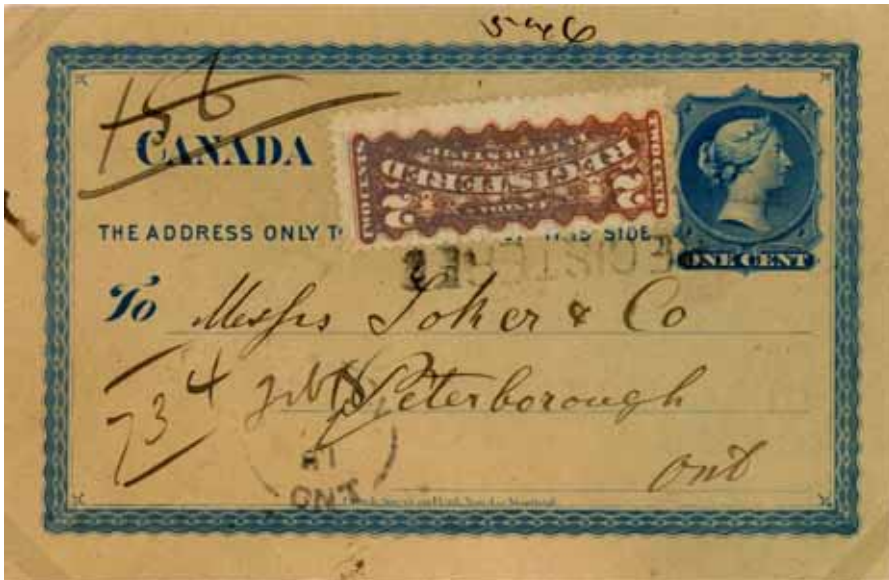 546
156
CANADA
REGISTERED
2 2
THE ADDRESS ONLY T THIS SIDE.
ONE CENT
To Messrs Toker & Co
734 Peterborough
Ont
81
ONT